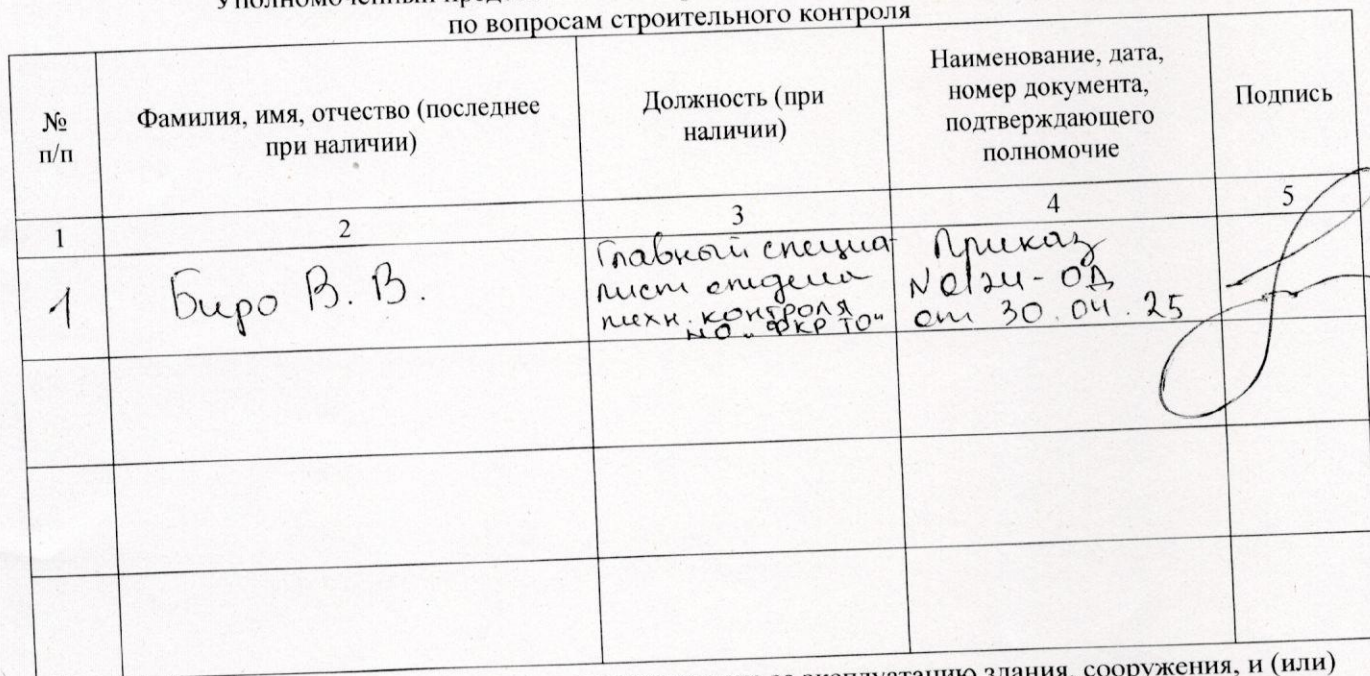 по вопросам строительного контроля
№
п/п
Фамилия, имя, отчество (последнее
при наличии)
Должность (при
наличии)
Наименование, дата,
номер документа,
подтверждающего
полномочие
Подпись
1
2
3
4
5
1
Биро В. В.
Главный специа
лист отдела
техн. контроля
НО "ФКР ТО"
Приказ
№124-ОД
от 30.04.25
эксплуатацию здания, сооружения, и (или)